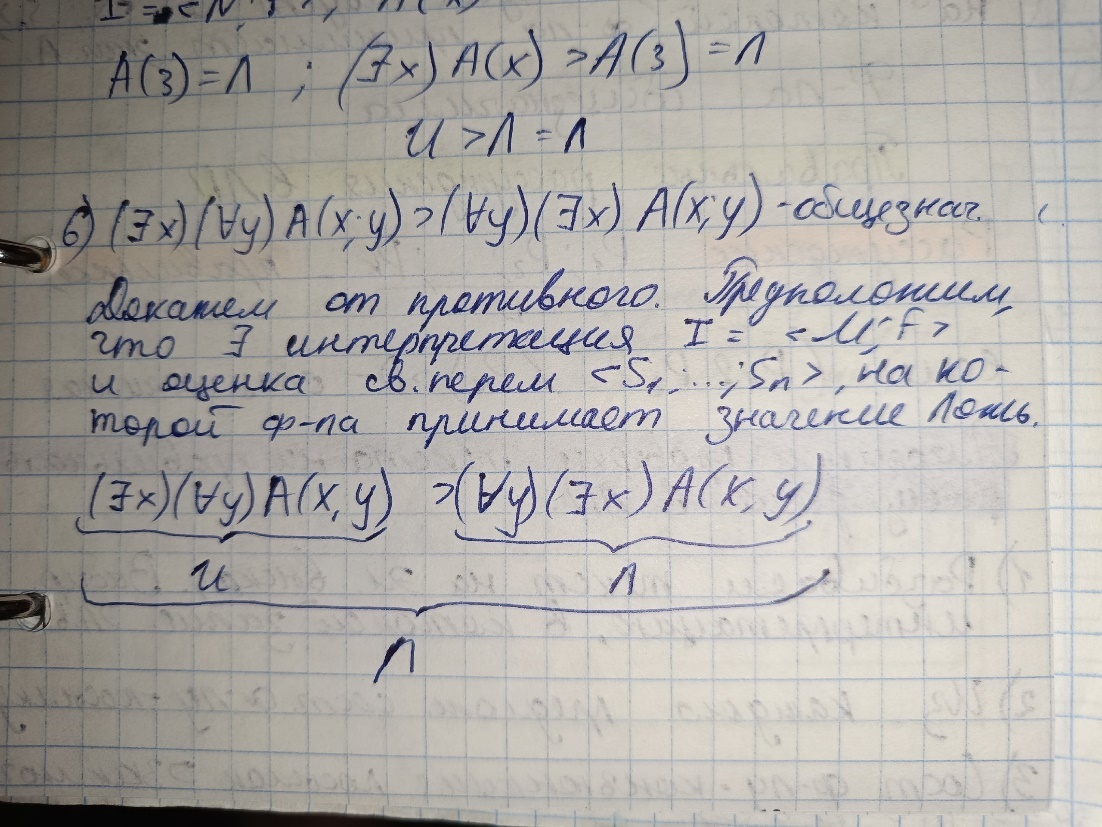 A(3)=Л ; (∃x) A(x) > A(3) = Л
И > Л = Л
б) (∃x)(∀y) A(x;y) > (∀y)(∃x) A(x;y) - общезнач.
Докажем от противного. Предположим,
что ∃ интерпретация I = <M; F>
и оценка св. перем <S₁;...;Sₙ>, на ко-
торой ф-ла принимает значение Ложь.
(∃x)(∀y)A(x,y) > (∀y)(∃x)A(x,y)
И Л
Л